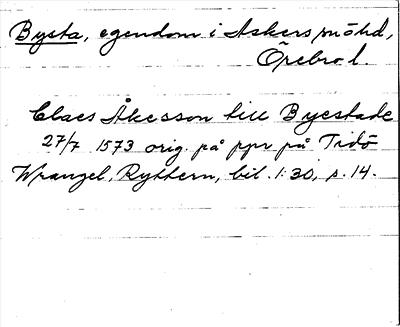 Bysta, egendom i Askers snöhd,
Örebro l.
Claes Åkesson till Byestade
27/7 1573 orig. på ppr på Tidö
Wrangel, Ryttern, bil. 1:30, s. 14.